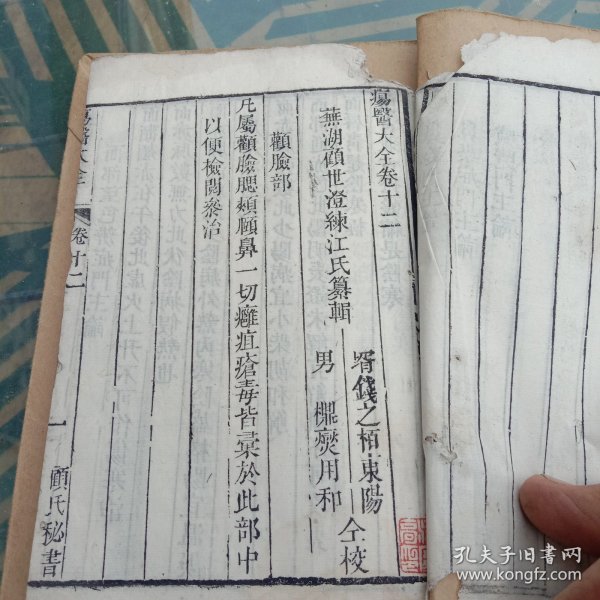 瘍醫大全卷十二
蕪湖顧世澄練江氏纂輯
壻錢之栢東陽
男㯋爕用和
仝校
顴臉部
凡屬顴臉腮頰頤鼻一切癰疽瘡毒皆彙於此部中
以便檢閱叅治
瘍醫大全
卷十二
一
顧氏秘書
孔夫子旧书网
www.kongfz.com